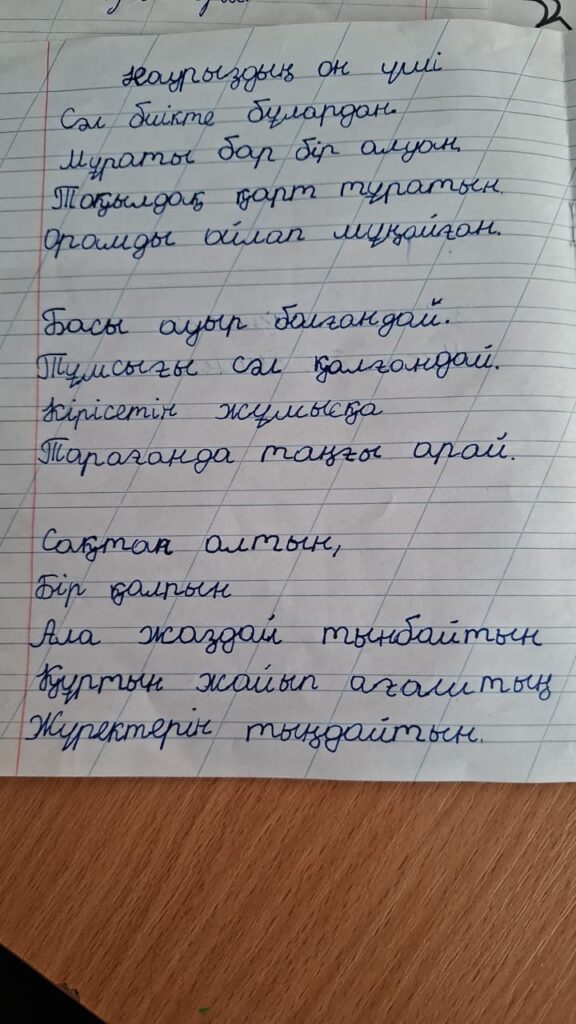 Наурыздың он үші
Сәл биікте бұлардан.
Мұраты бар бір алуан,
Тоқылдақ қарт тұратын.
Орамды ойлап мұңайған.
Басы ауыр болғандай.
Тұмсығы сәл қалғандай.
Кірісетін жұмысқа
Тарағанда таңғы арай.
Сақтап алтын,
Бір қалпын
Ала жаздай тынбайтын
Құртын жайып ағаштың
Жүректерін тыңдайтын.